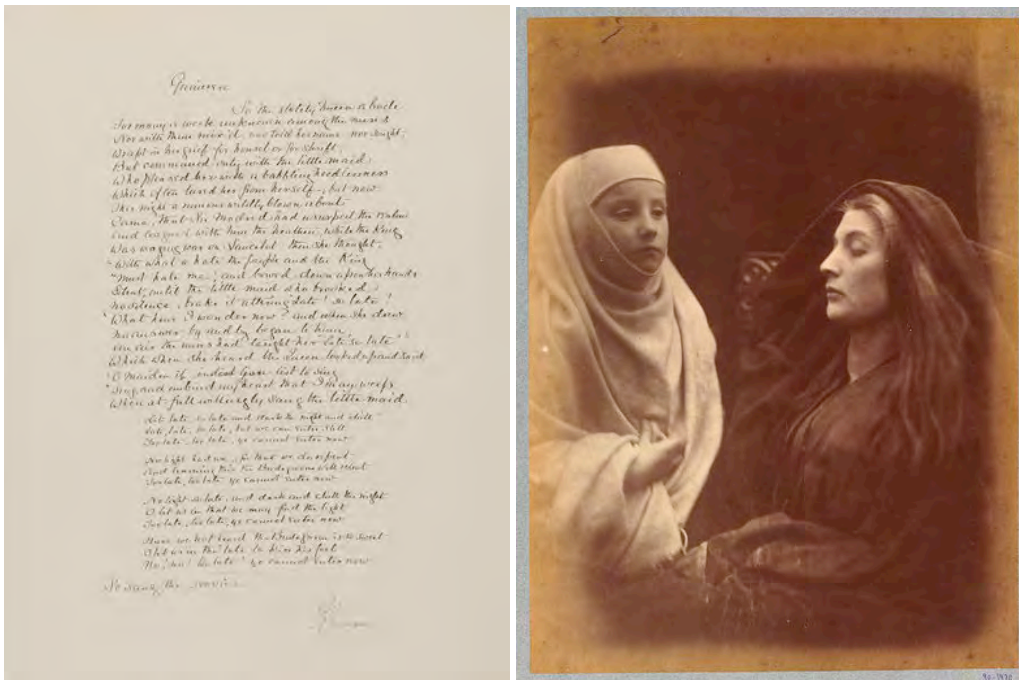 Guinevere
So the stately Queen abode
For many a week unknown among the nuns
Nor with them mix'd, nor told her name, nor sought,
Wrapt in her grief, for housel or for shrift,
But communed only with the little maid
Who pleased her with a babbling heedlessness
Which often lured her from herself; but now
This night a rumour wildly blown about
Came, that Sir Modred had usurped the realm
And leagued with him the heathen, while the King
Was waging war on Lancelot: then she thought,
"With what a hate the people and the King
"Must hate me", and bowed down upon her hands
Silent, until the little maid who brook'd
no silence, brake it uttering "Late! so late!
"What hour, I wonder now?" and when she drew
no answer by and by began to hum
An air the nuns had taught her "Late so late"
Which when she heard the Queen looked up and said
"O Maiden if indeed you list to sing
"Sing, and unbind my heart that I may weep"
Whereat full willingly sang the little maid
Late late, so late and dark the night and chill
Late, late, so late, but we can enter still
Too late, too late, ye cannot enter now
No light had we, for that we do repent
And learning this the Bridegroom will relent
Too late, too late ye cannot enter now
No light so late, and dark and chill the night
O let us in that we may find the light
Too late, too late, ye cannot enter now
Have we not heard the Bridegroom is so sweet
O let us in tho' late to kiss his feet
No! no! too late! ye cannot enter now
So sang the novice